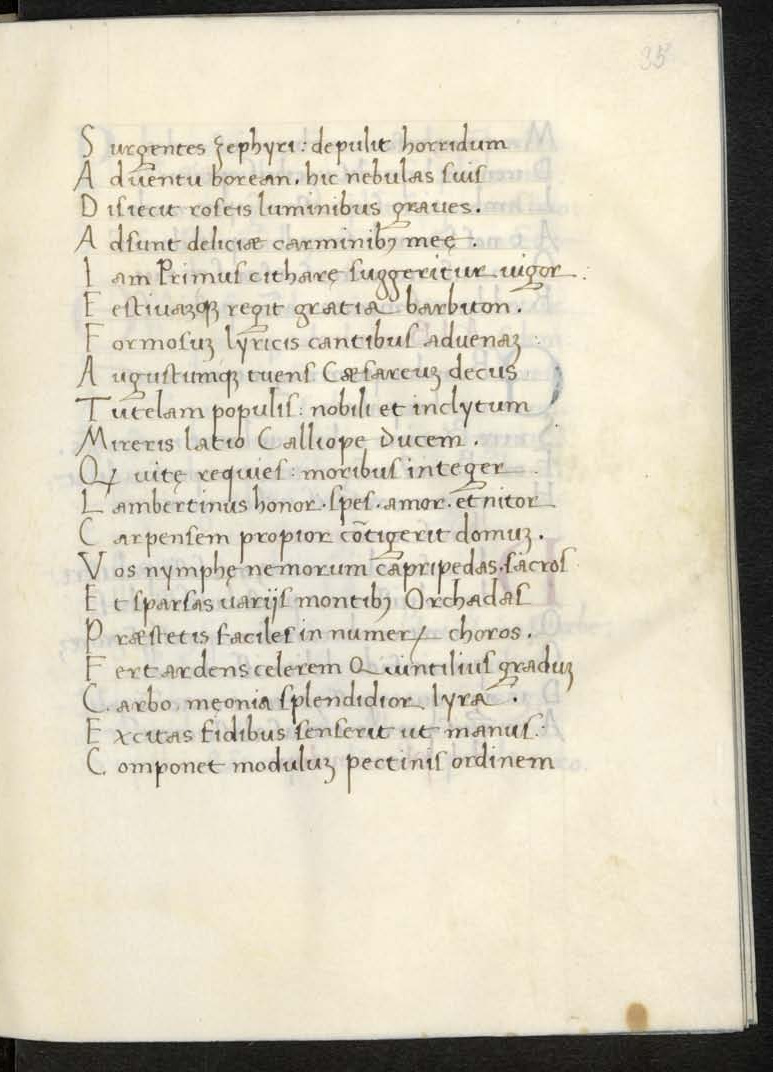 35
S urgentes zephyri : depulit horridum
A duentu borean . hic nebulas suis
D isiecit roseis luminibus graues .
A dsunt deliciæ carminibꝫ meę .
I am Primus citharę suggeritur uigor .
E estiuaꝫqꝫ regit gratia barbiton .
F ormosuꝫ lyricis cantibus aduenaꝫ
A ugustumqꝫ tuens Cæsareuꝫ decus
T utelam populis : nobili et inclytum
M ireris latio Calliope Ducem .
Qꝫ uitę requies : moribus integer .
L ambertinus honor . spes . amor . et nitor
C arpensem propior cōtigerit domuꝫ .
V os nymphę nemorum capripedas . sacros
E t sparsas uarijs montibꝫ Orchadas
P ræstetis faciles in numeꝝ choros .
F ert ardens celerem Quintilius graduꝫ
C arbo meonia splendidior lyra .
E xcitas fidibus senserit ut manus .
C omponet moduluꝫ pectinis ordinem